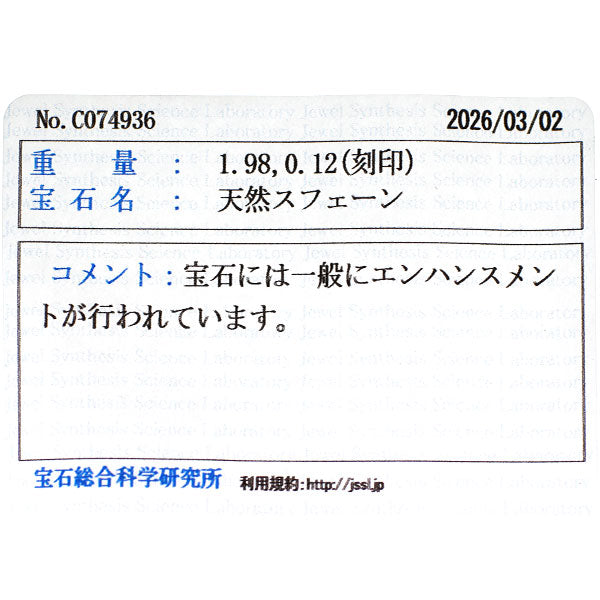 No. C074936 2026/03/02
重量 : 1.98, 0.12(刻印)
宝石名 : 天然スフェーン
コメント : 宝石には一般にエンハンスメン
トが行われています。
宝石総合科学研究所 利用規約:http://jssl.jp
Jewel Synthesis Science Laboratory